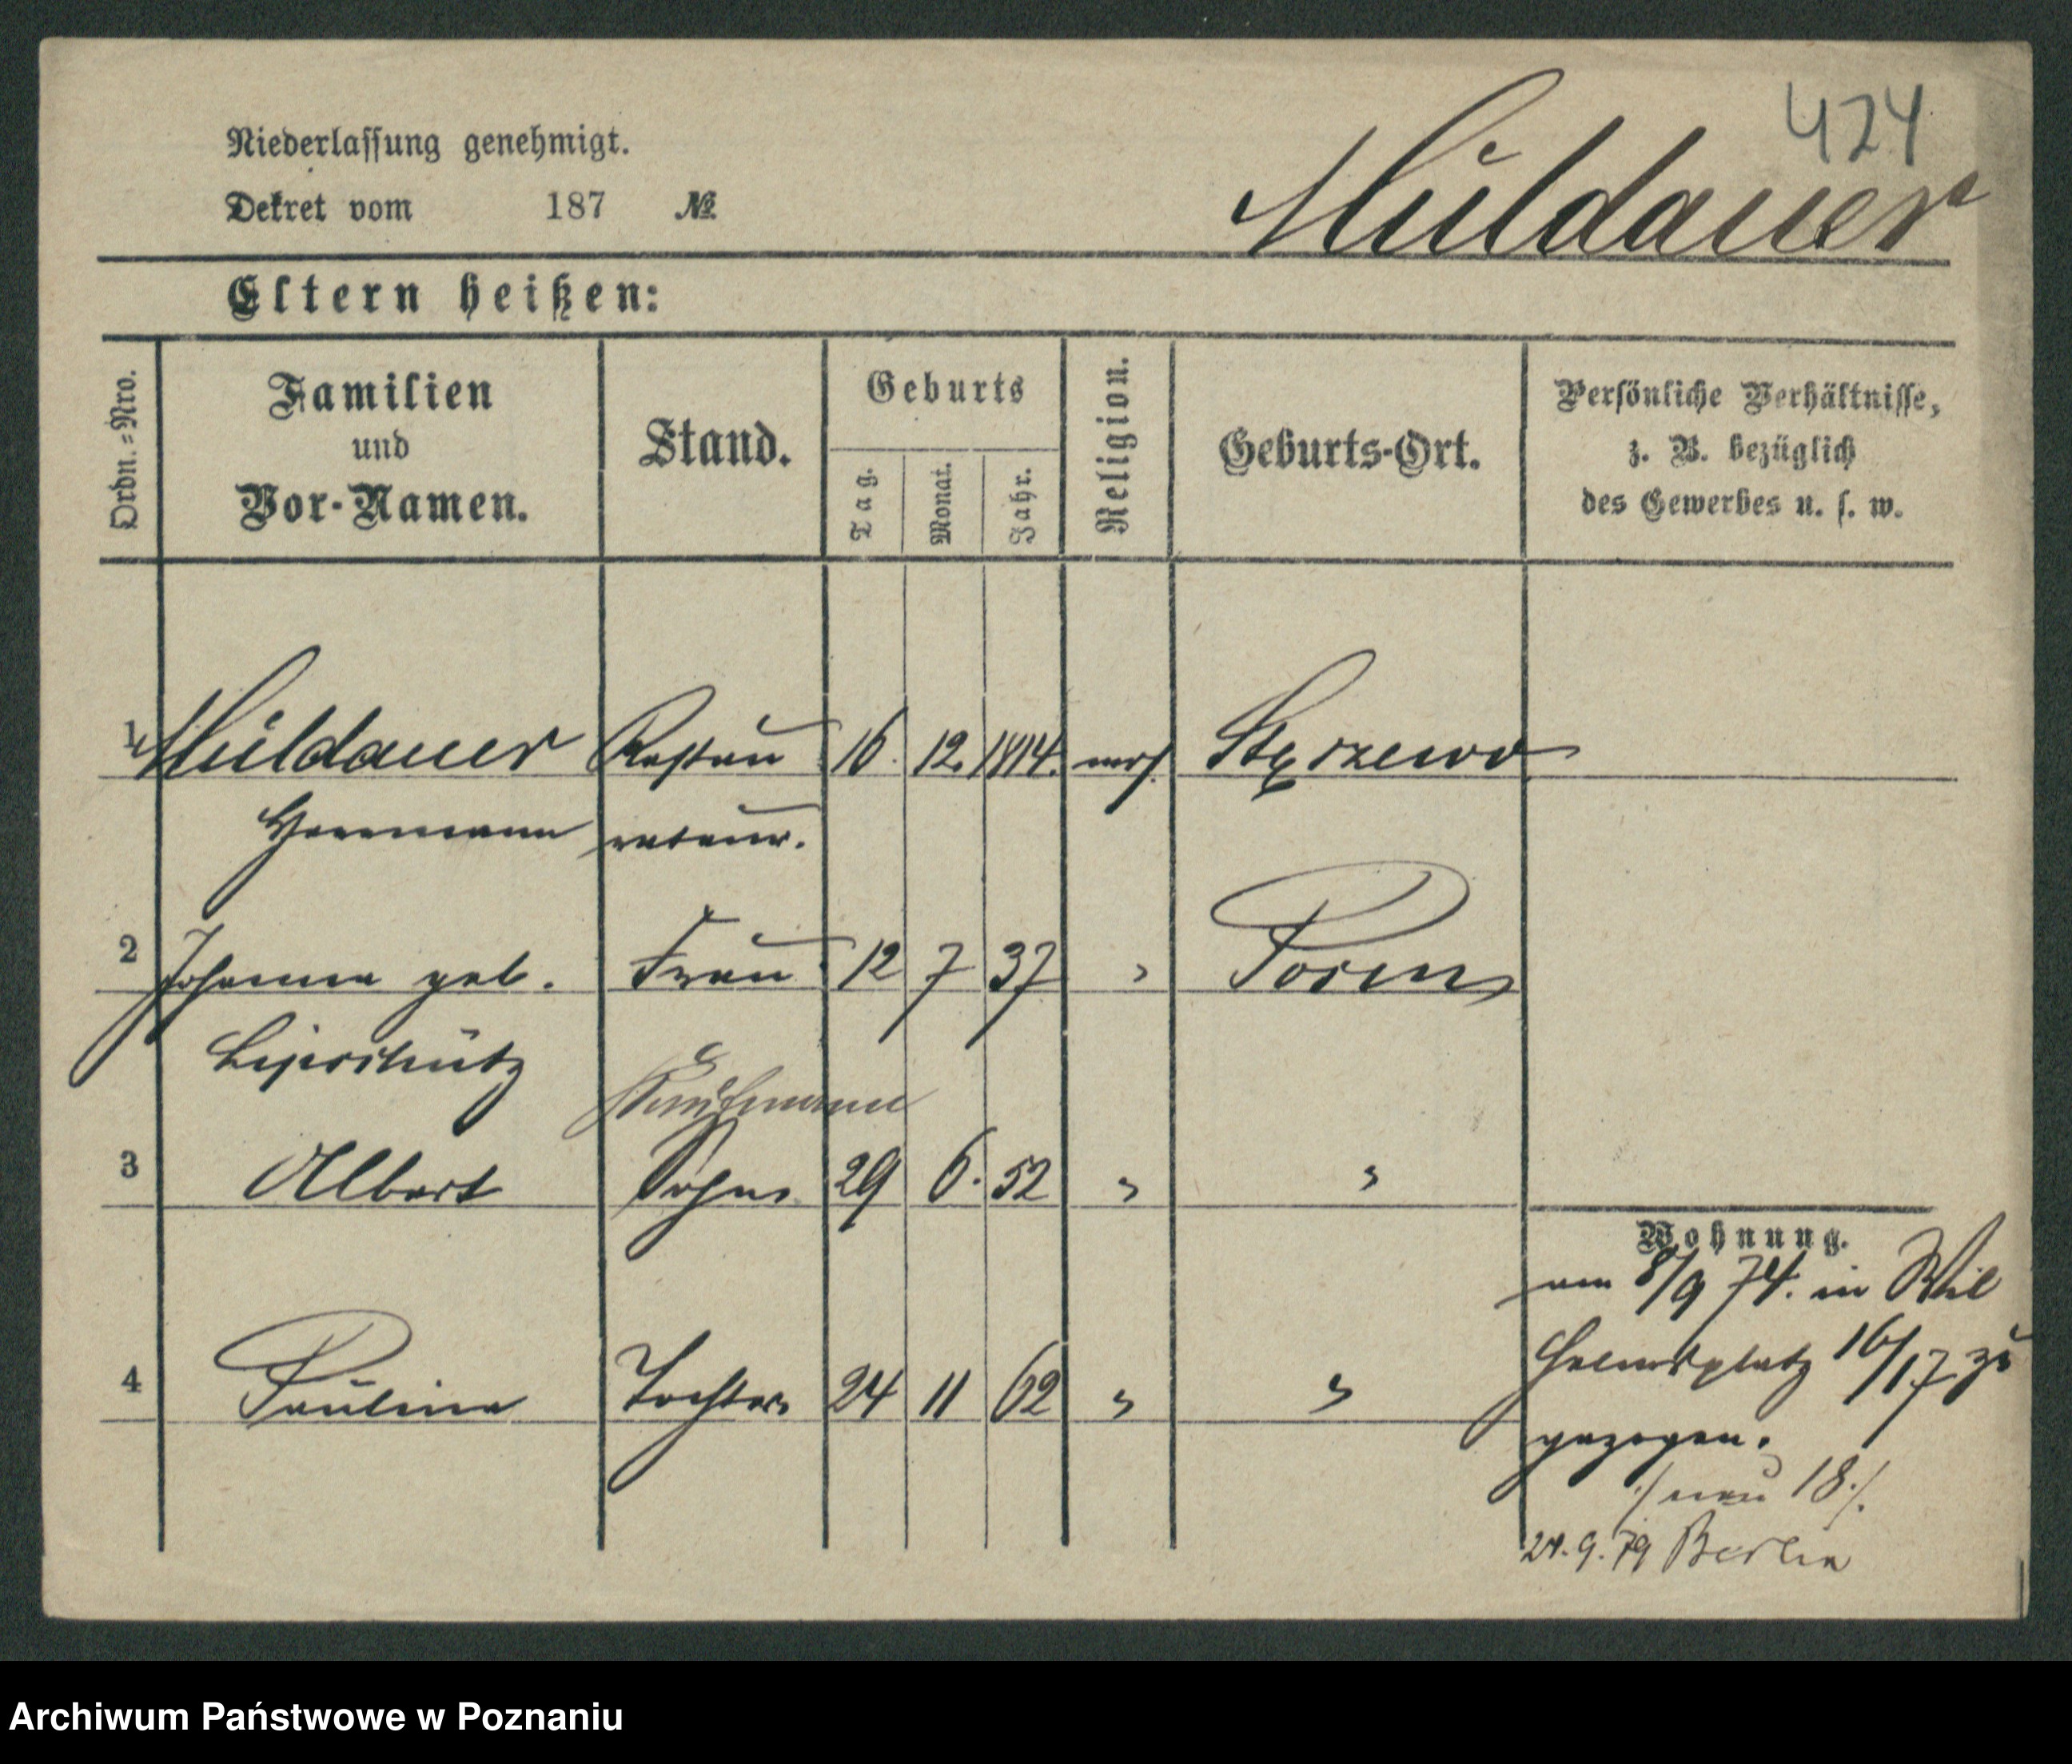 424
Niederlassung genehmigt.
Dekret vom 187 №
Muldauer
Eltern heißen:
Ordn.=Nro.
Familien
und
Vor-Namen.
Stand.
Geburts
Tag.
Monat.
Jahr.
Religion.
Geburts-Ort.
Persönliche Verhältnisse,
z. B. bezüglich
des Gewerbes u. s. w.
1 Muldauer Restau 16. 12. 1814. mos. Stęszewo
Herrmann rateur.
2 Johanna geb. Frau 12 7 37 " Posen
Lipschütz
Kaufmann
3 Albert Sohn 29 6. 52 " "
Wohnung.
am 8/9 74. in Wil
helmsplatz 16/17 zu
4 Paulina Tochter 24 11 62 " "
gezogen.
./ neu 18 ./.
24.9.79 Berlin
Archiwum Państwowe w Poznaniu